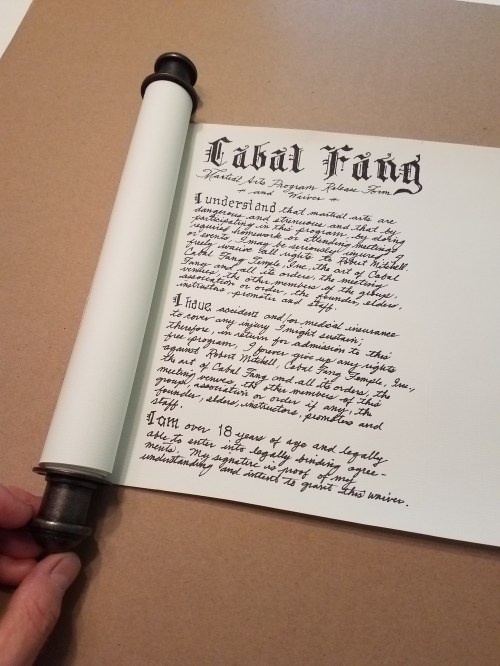 Cabal Fang
Martial Arts Program Release Form
+ and Waiver +
I understand that martial arts are
dangerous and strenuous and that by
participating in this program, by doing
required homework or attending meetings
or events, I may be seriously injured. I
freely waive all rights to Robert Mitchell,
Cabal Fang Temple, Inc., the art of Cabal
Fang and all its orders, the meeting
venues, the other members of the groups,
association or order, the founder, elders,
instructors, promoters and staff.
I have accident and/or medical insurance
to cover any injury I might sustain;
therefore, in return for admission to this
free program, I forever give up any rights
against Robert Mitchell, Cabal Fang Temple, Inc.,
the art of Cabal Fang and all its orders, the
meeting venues, the other members of this
group, association or order if any, the
founder, elders, instructors, promoters and
staff.
I am over 18 years of age and legally
able to enter into legally binding agree-
ments. My signature is proof of my
understanding and intent to grant this waiver.